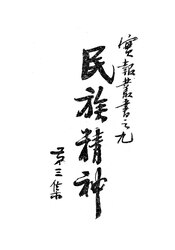 實報叢書之九
民族精神
第三集